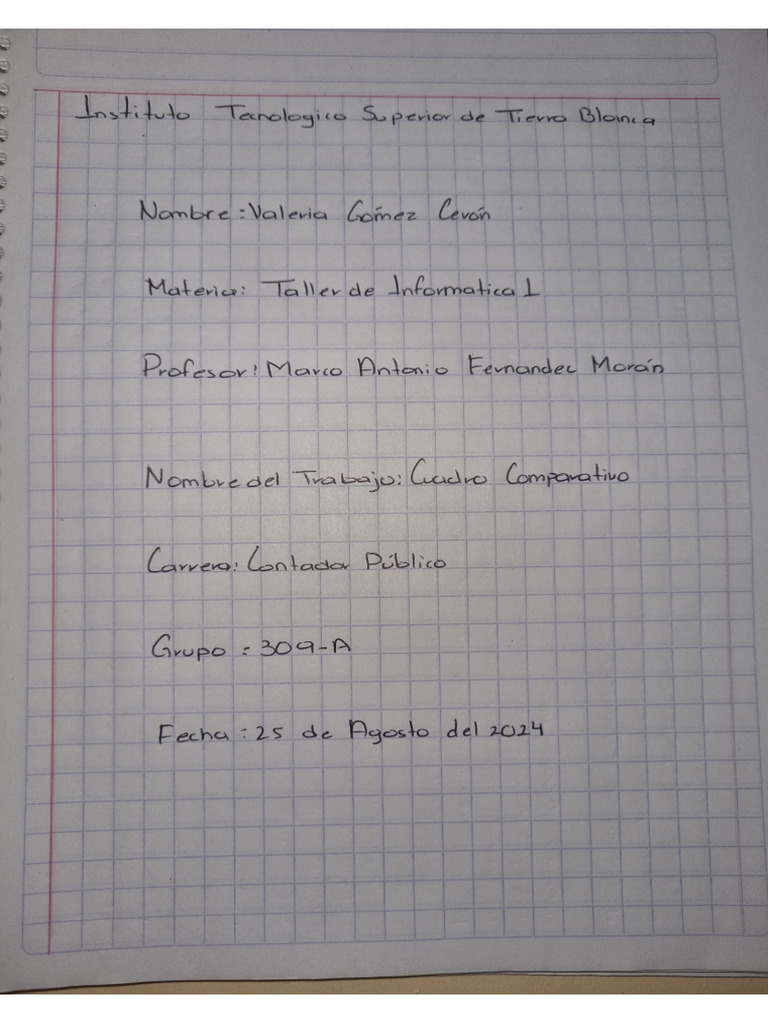 Instituto Tecnologico Superior de Tierra Blanca
Nombre: Valeria Gómez Cerón
Materia: Taller de Informatica 1
Profesor: Marco Antonio Fernandec Morán
Nombre del Trabajo: Cuadro Comparativo
Carrera: Contador Público
Grupo: 309-A
Fecha: 25 de Agosto del 2024